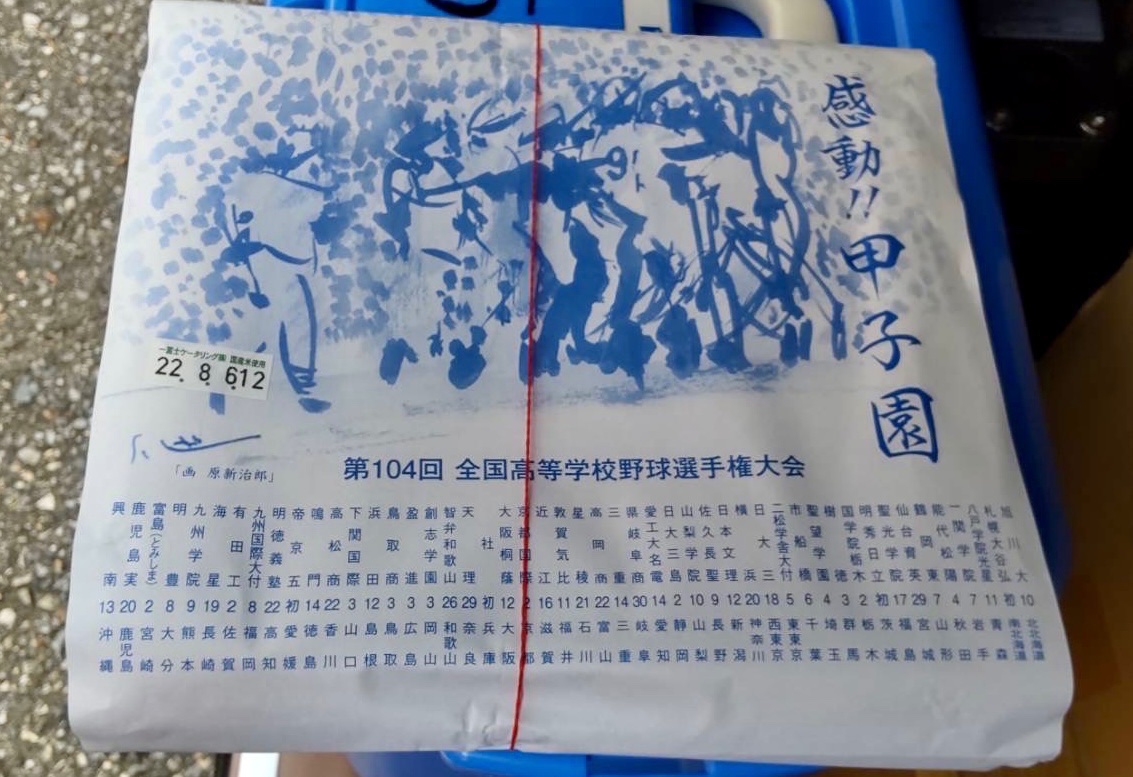 感動!!甲子園
一冨士ケータリング㈱ 国産米使用
22. 8. 612
「画 原新治郎」
第104回 全国高等学校野球選手権大会
旭川大 10 北北海道
札幌大谷 初 南北海道
八戸学院光星 11 青森
一関学院 7 岩手
能代松陽 4 秋田
鶴岡東 7 山形
仙台育英 29 宮城
聖光学院 17 福島
明秀日立 初 茨城
国学院栃木 2 栃木
樹徳 3 群馬
聖望学園 4 埼玉
市船橋 6 千葉
二松学舎大付 5 東東京
日大三 18 西東京
横浜 20 神奈川
日本文理 12 新潟
佐久長聖 9 長野
山梨学院 10 山梨
日大三島 2 静岡
愛工大名電 14 愛知
県岐阜商 30 岐阜
三重 14 三重
高岡商 22 富山
星稜 21 石川
敦賀気比 11 福井
近江 16 滋賀
京都国際 2 京都
大阪桐蔭 12 大阪
社 初 兵庫
天理 29 奈良
智弁和歌山 26 和歌山
創志学園 3 岡山
盈進 3 広島
鳥取商 3 鳥取
浜田 12 島根
下関国際 3 山口
高松商 22 香川
鳴門 14 徳島
帝京五 初 愛媛
明徳義塾 22 高知
九州国際大付 8 福岡
有田工 2 佐賀
海星 19 長崎
九州学院 9 熊本
明豊 8 大分
富島(とみしま) 2 宮崎
鹿児島実 20 鹿児島
興南 13 沖縄